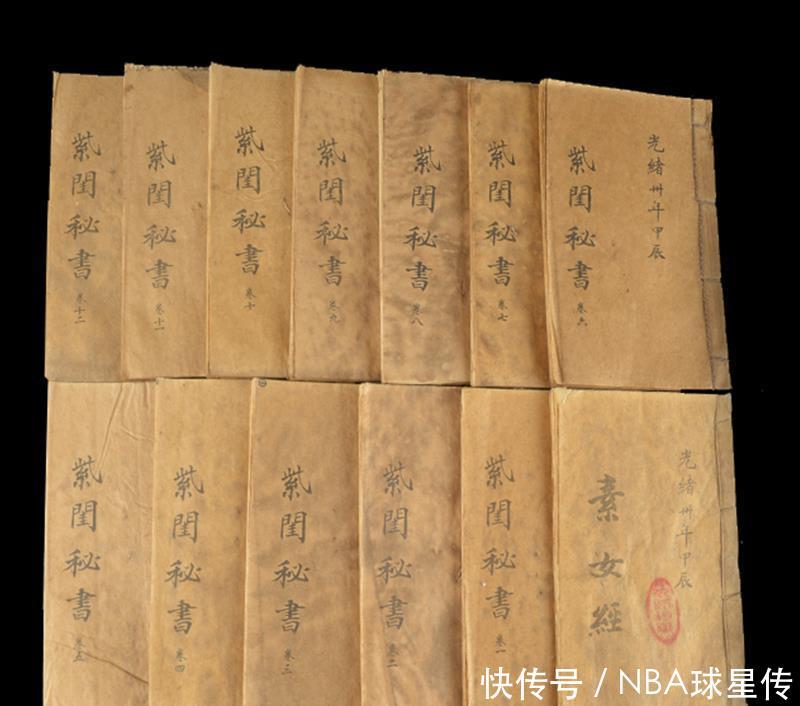 光緒卅年甲辰
紫閨秘書 卷六
紫閨秘書 卷七
紫閨秘書 卷八
紫閨秘書 卷九
紫閨秘書 卷十
紫閨秘書 卷十一
紫閨秘書 卷十二
光緒卅年甲辰
素女經
紫閨秘書 卷一
紫閨秘書 卷二
紫閨秘書 卷三
紫閨秘書 卷四
紫閨秘書 卷五
快传号 / NBA球星传